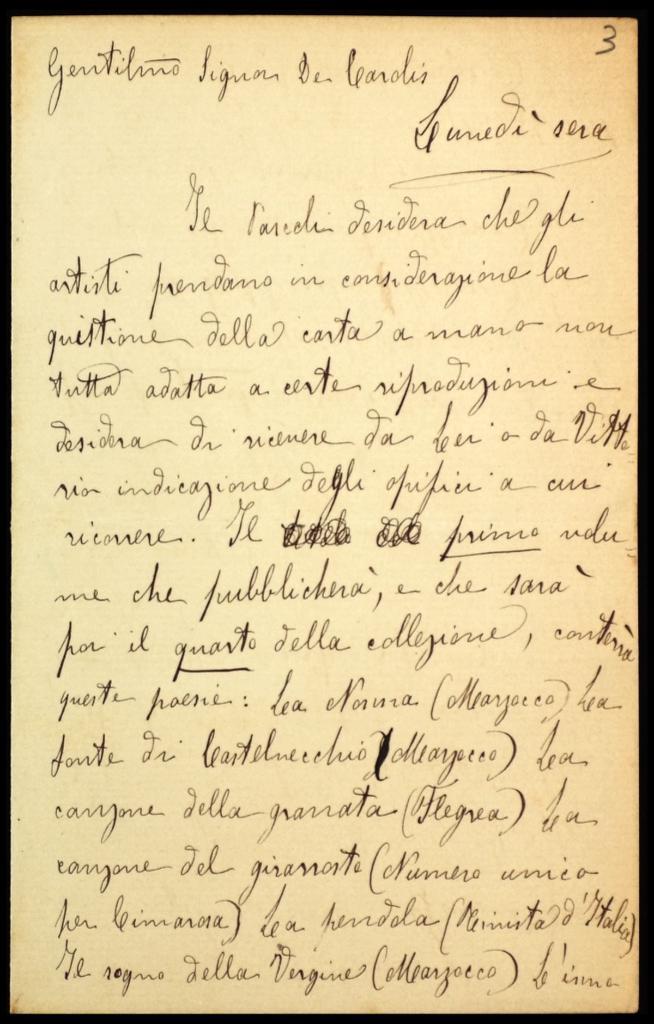 3
Gentilmo Signor De Carolis
Lunedì sera
Il Pascoli desidera che gli
artisti prendano in considerazione la
quistione della carta a mano non
tutta adatta a certe riproduzioni e
desidera di ricevere da Lei o da Vitto-
rio indicazione degli opifici a cui
ricorrere. Il primo volu-
me che pubblicherà, e che sarà
poi il quarto della collezione, conterrà
queste poesie: La Norma (Marzocco) La
fonte di Castelvecchio (Marzocco) La
canzone della granata (Flegrea) La
canzone del girarrosto (Numero unico
per Cimarosa) La pendola (Rivista d'Italia)
Il sogno della Vergine (Marzocco) L'inno